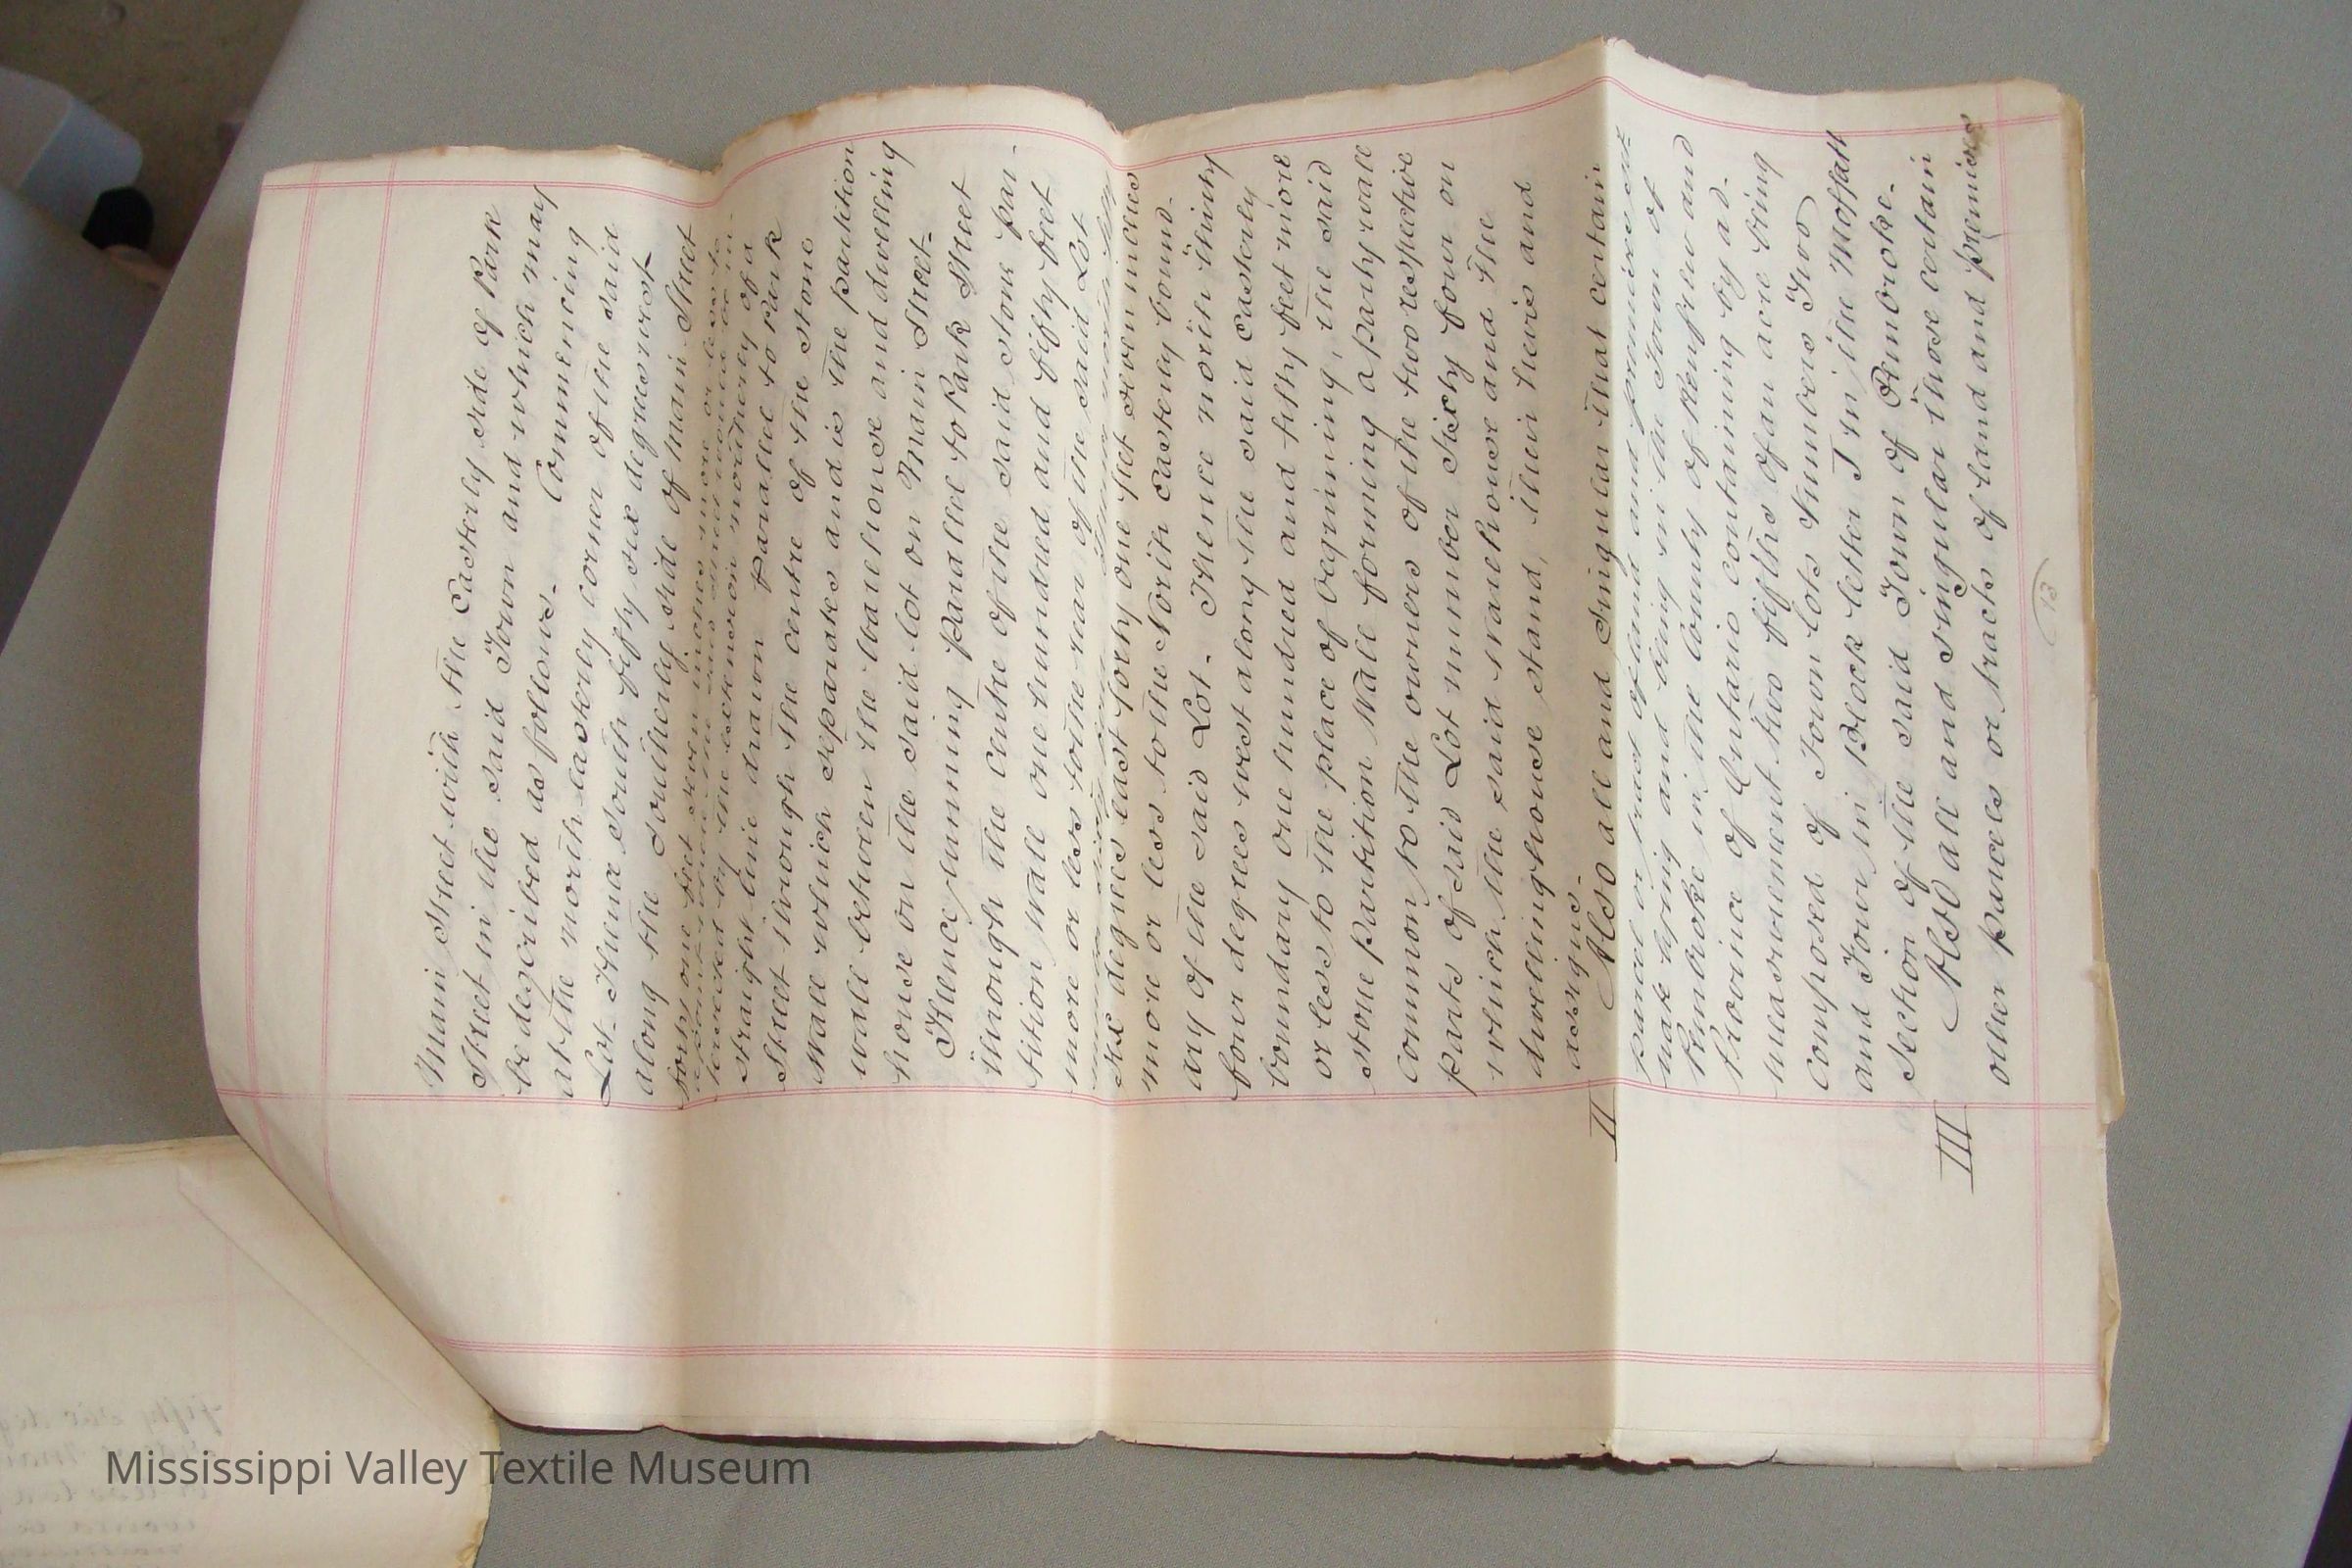 Main Street with the Easterly side of Park
Street in the said Town and which may
be described as follows. Commencing
at the north easterly corner of the said
Lot. Thence South fifty six degrees west
along the Southerly side of Main Street
forty one feet seven inches more or less to
tersected by the extension northerly of a
straight line drawn parallel to Park
Street through the centre of the stone
wall which separates and is the partition
wall between the bakehouse and dwelling
house on the said lot on Main Street.
Thence running parallel to Park Street
through the centre of the said stone par-
tition wall one hundred and fifty feet
more or less to the rear of the said Lot
six degrees east forty one feet seven inches
more or less to the North easterly bound-
ary of the said Lot. Thence north thirty
four degrees west along the said easterly
boundary one hundred and fifty feet more
or less to the place of beginning, the said
stone partition wall forming a party wall
common to the owners of the two respective
parts of said Lot number Sixty four on
which the said bakehouse and the
dwellinghouse stand, their heirs and
assigns.
II Also all and Singular that certain
parcel or tract of land and premises sit-
uate lying and being in the Town of
Pembroke in the County of Renfrew and
Province of Ontario containing by ad-
measurement two fifths of an acre being
composed of Town lots Numbers Two
and Four in Block letter I in the Moffatt
Section of the said Town of Pembroke.
III Also all and singular those certain
other parcels or tracts of land and premises
13
Mississippi Valley Textile Museum